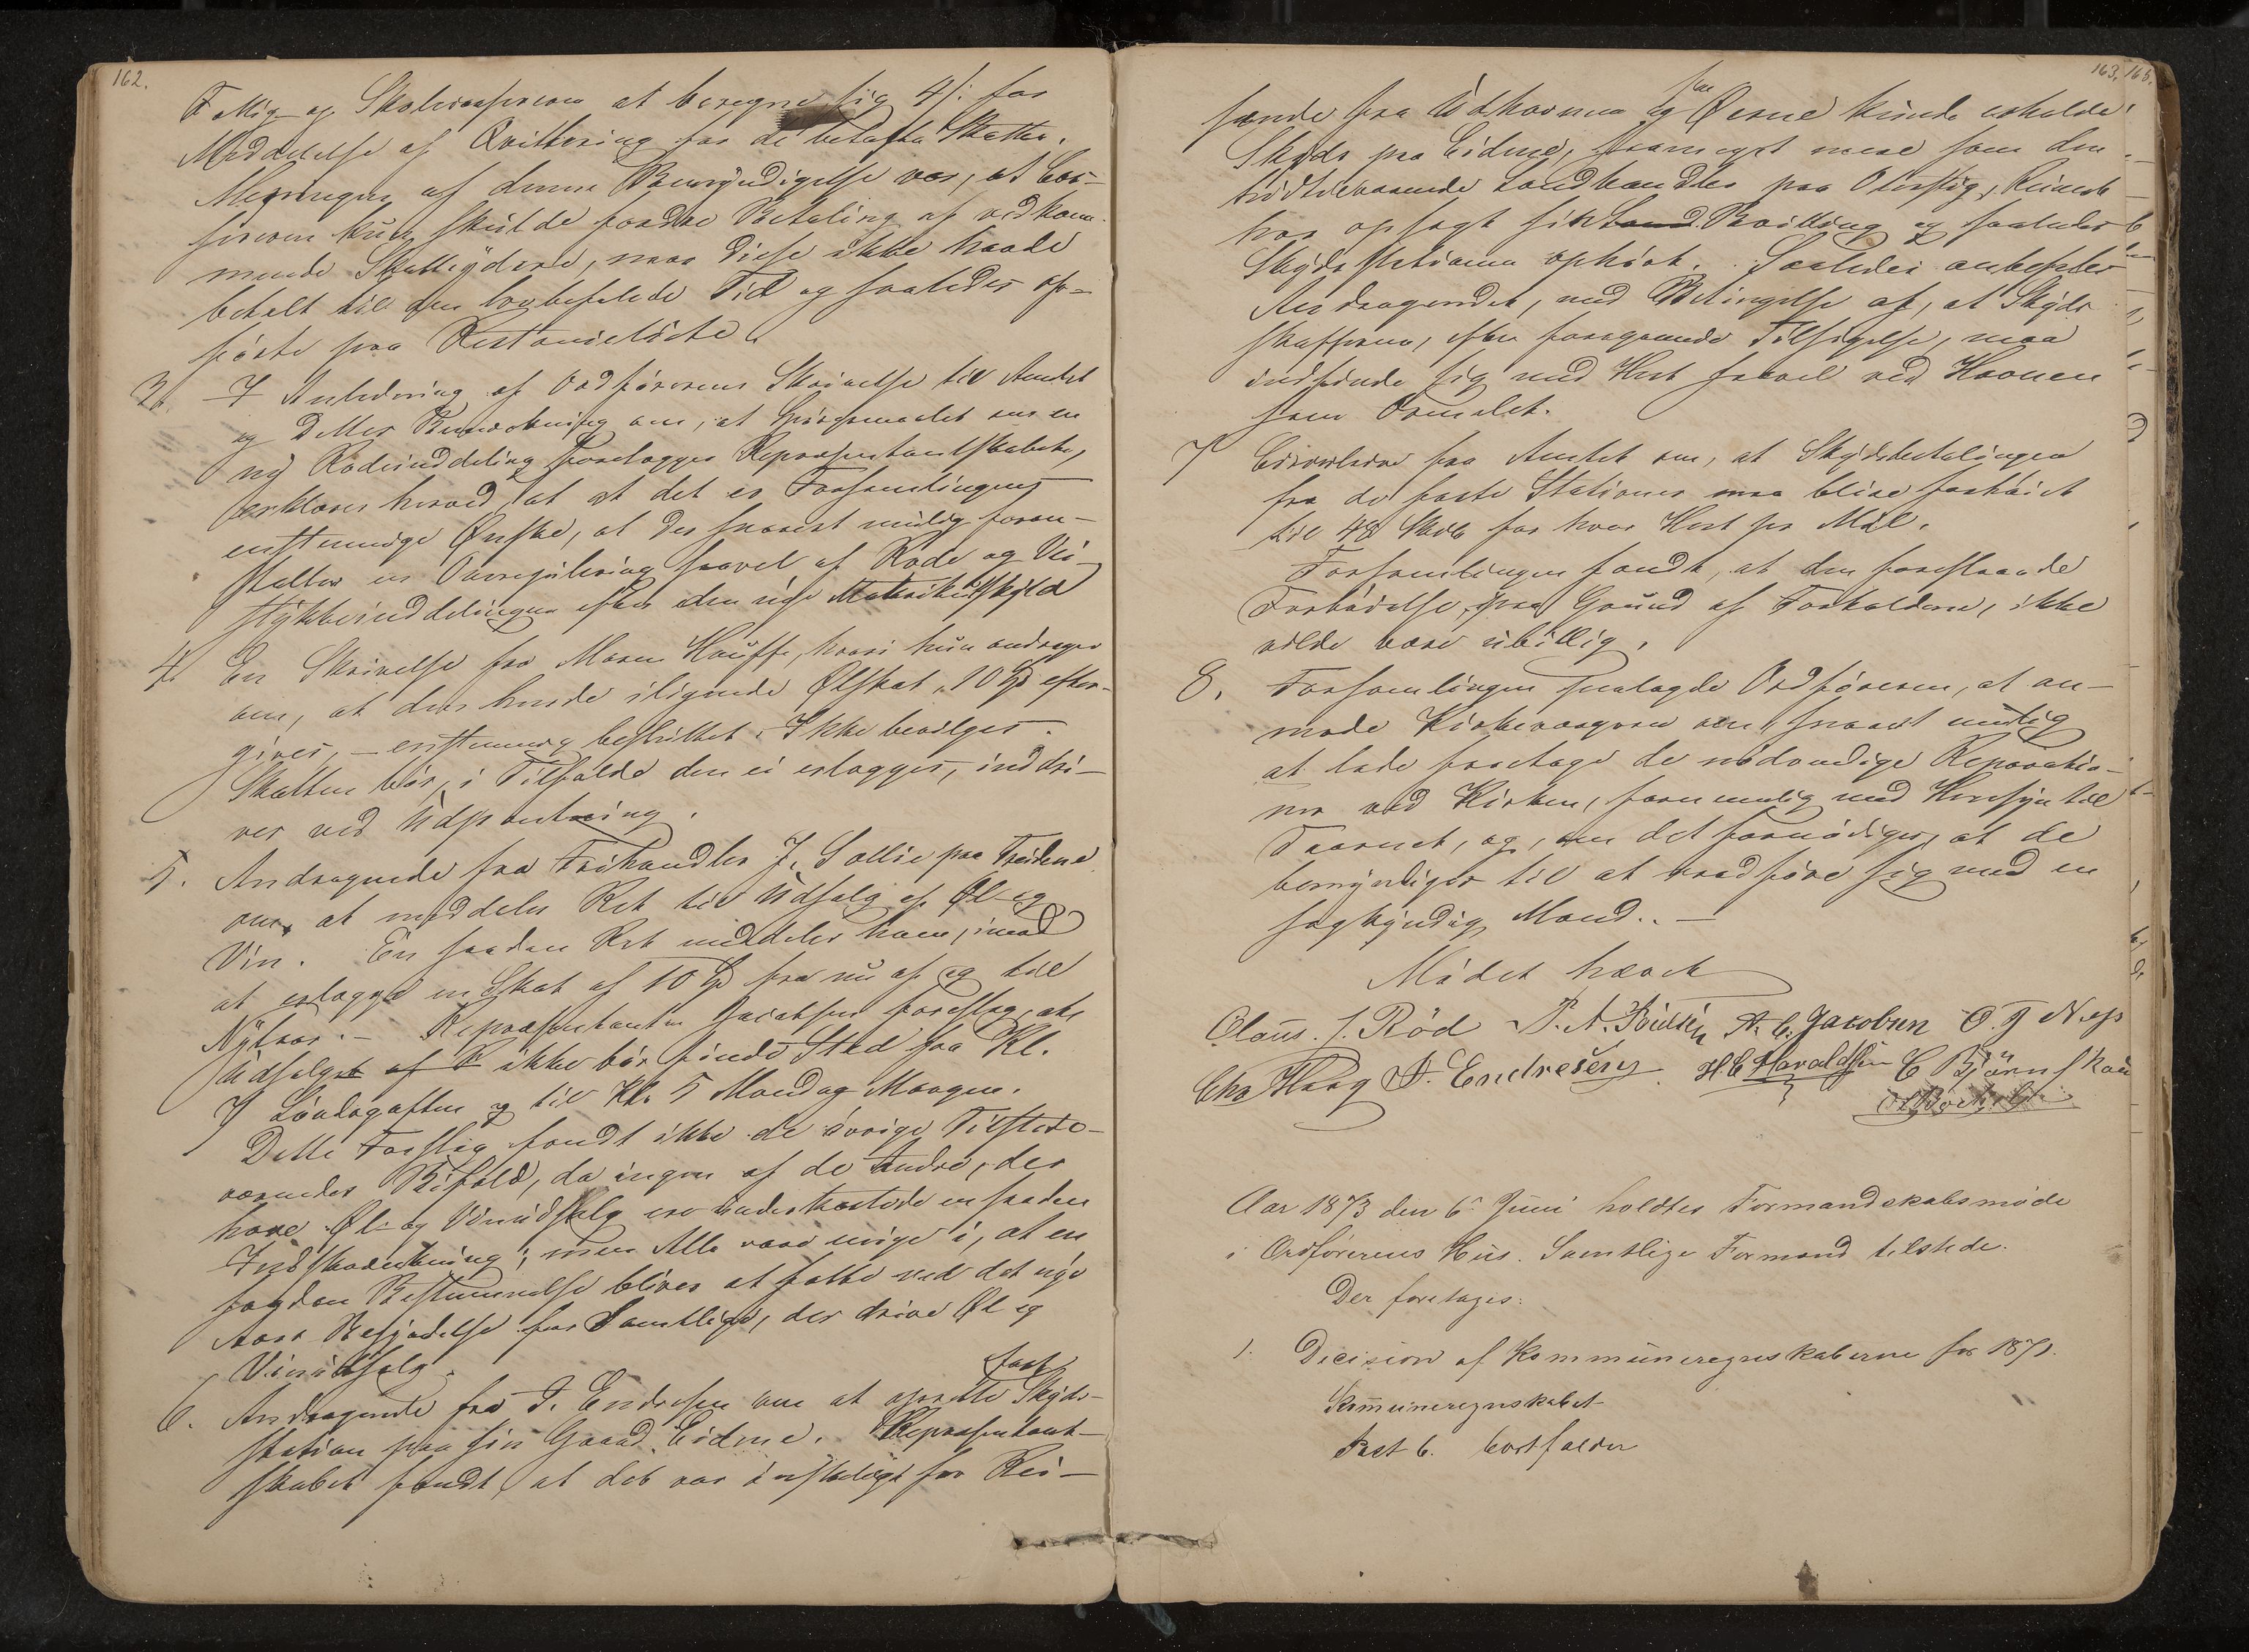 162.
Fattig og Skolekasserern at beregne sig 4 /: for
Meddelelse af Qvittering for de betalte Skatter.
Meningen af denne Bemyndigelse var, at Cas-
sereren kun skulde fordre Betaling af vedkom-
mende Skatteydere, naar disse ikke havde
betalt til den lovbefalede Tid og saaledes op-
førte paa Restanceliste.
3. I Anledning af Ordførerens Skrivelse til Amtet
og dettes Bemærkning om, at Spørgsmaalet om en
ny Rodeinddeling forelægges Repræsentantskabet,
erklæres herved at det er Forsamlingens
enstemmige Ønske, at der snarest mulig foran-
staltes en Omregulering saavel af Rode og Vei-
stykkeinddelingen efter den nye Matrikulskyld
4. En Skrivelse fra Maren Hauff, hvori hun andrager
om, at den hende ilignede Ølskat, 10 Spd efter-
gives, – enstemmig besluttet: Ikke bevilges.
Skatten bør, i Tilfælde den ei erlægges, inddri-
ves ved Udpantning.
5. Andragende fra Frihandler J. Sollie paa
om, at meddeles Ret til Udsalg af Øl og
Vin. En saadan Ret meddeles ham, imod
at erlægge en Skat af 10 Spd fra nu af og til
Nytaar. – Repræsentanten Jacobsen foreslog, at
Udsalget af V ikke bør finde Sted fra Kl.
7 Løverdagaften og til Kl. 5 Mandag Morgen.
Dette Forslag fandt ikke de øvrige Tilstede-
værendes Bifald, da ingen af de Andre, der
have Øl- og Vinudsalg ere underkastede en saadan
Indskrænkning; men Alle vare enige i, at en
saadan Bestemmelse bliver at fatte ved det nye
Aars Begyndelse for Samtlige, der drive Øl og
Vinudsalg.
6. Andragende fra A. Endresen om at oprette fast Skyds-
station paa sin Gaard Eidene. Repræsentant-
skabet fandt, at det var ønskeligt for Rei-
163. 165.
sende fra Udhavnen og fra Øerne kunde erholde
Skyds paa Eidene, saameget mere som den
hidtilværende Landhandler paa
har opsagt sin Land Bevilling og saaledes
Skydsstationen ophørt. Saaledes anbefales
Andragendet, med Betingelse af, at Skyds
skafferen, efter foregaaende Tilsigelse, maa
indfinde sig med Hest saavel ved Havnen
som
7 Circulære fra Amtet om, at Skydsbetalingen
fra de faste Stationer maa blive forhøiet
til 48 Skill for hver Hest pr Mil.
Forsamlingen fandt, at den foreslaaede
Forhøielse, paa Grund af Forholdene, ikke
vilde være ubillig.
8. Forsamlingen paalagde Ordføreren, at an-
mode Kirkeværgerne om snarest mulig
at lade foretage de nødvendige Reparatio-
ner ved Kirken, fornemlig med Hensyn til
Taarnet, og, om det fornødiges, at de
bemyndiges til at raadføre sig med en
sagkyndig Mand. –
Mødet hævet
Claus. J. Röd P. A. Poulsen A. C. Jacobsen O. T Nes
Chr Haag A. Endresen H. C Haraldsen C Bjørnskau
Aar 1873 den 6te Juni holdtes Formandskabsmøde
i Ordførerens Hus. Samtlige Formænd tilstede.
Der foretages:
1. Decision af Kommuneregnskaberne for 1871.
Kommuneregnskabet
Post 6. bortfalder